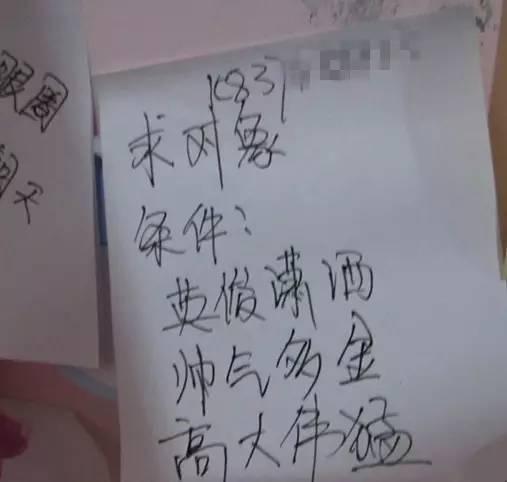 求对象
条件：
英俊潇洒
帅气多金
高大伟猛
圈
天